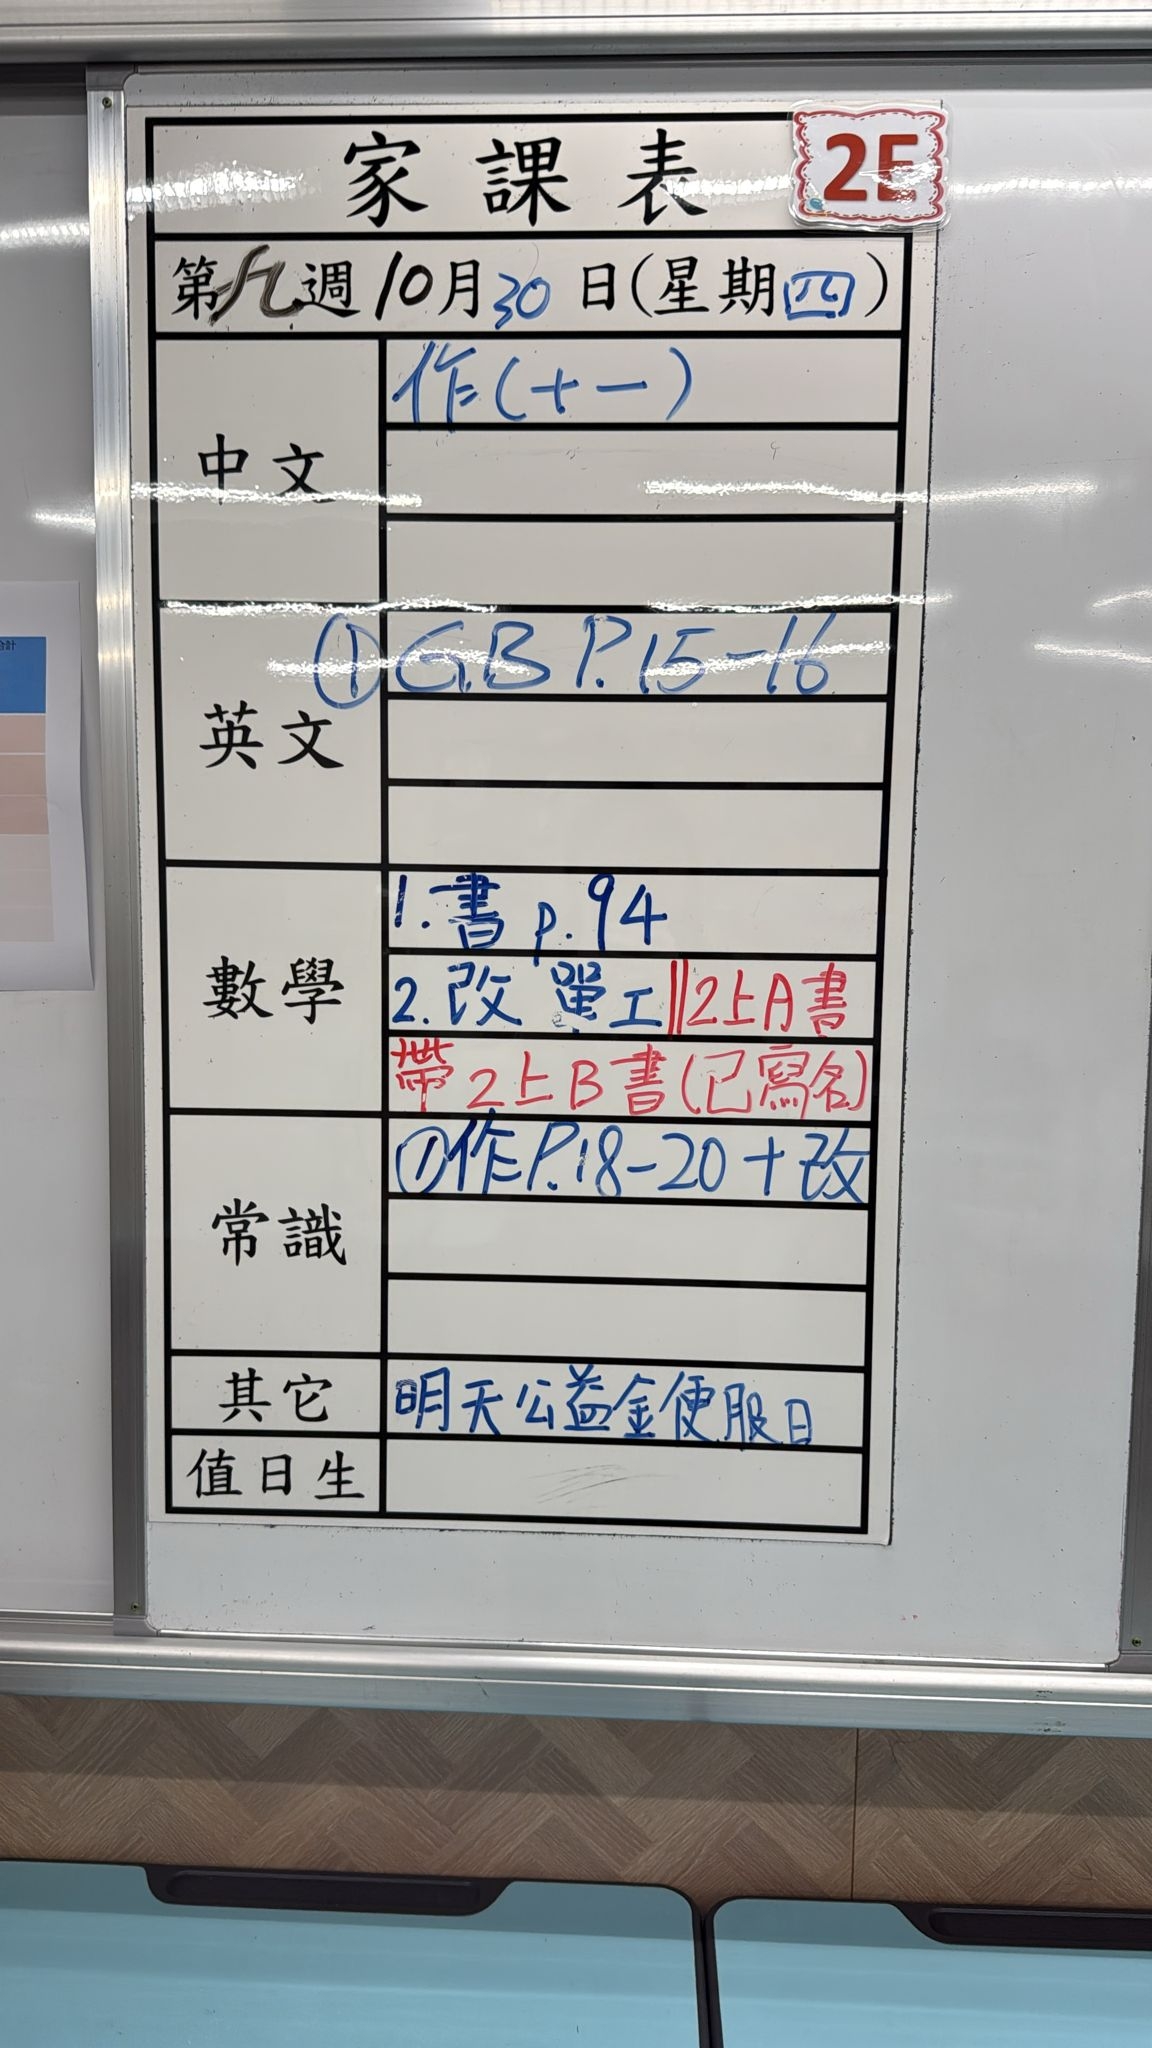 家課表
2E
第九週10月30日(星期四)
中文
作(十一)
英文
①G.B P.15-16
數學
1.書 p.94
2.改 單工||2上A書
帶2上B書(已寫名)
常識
①作P.18-20+改
其它
明天公益金便服日
值日生